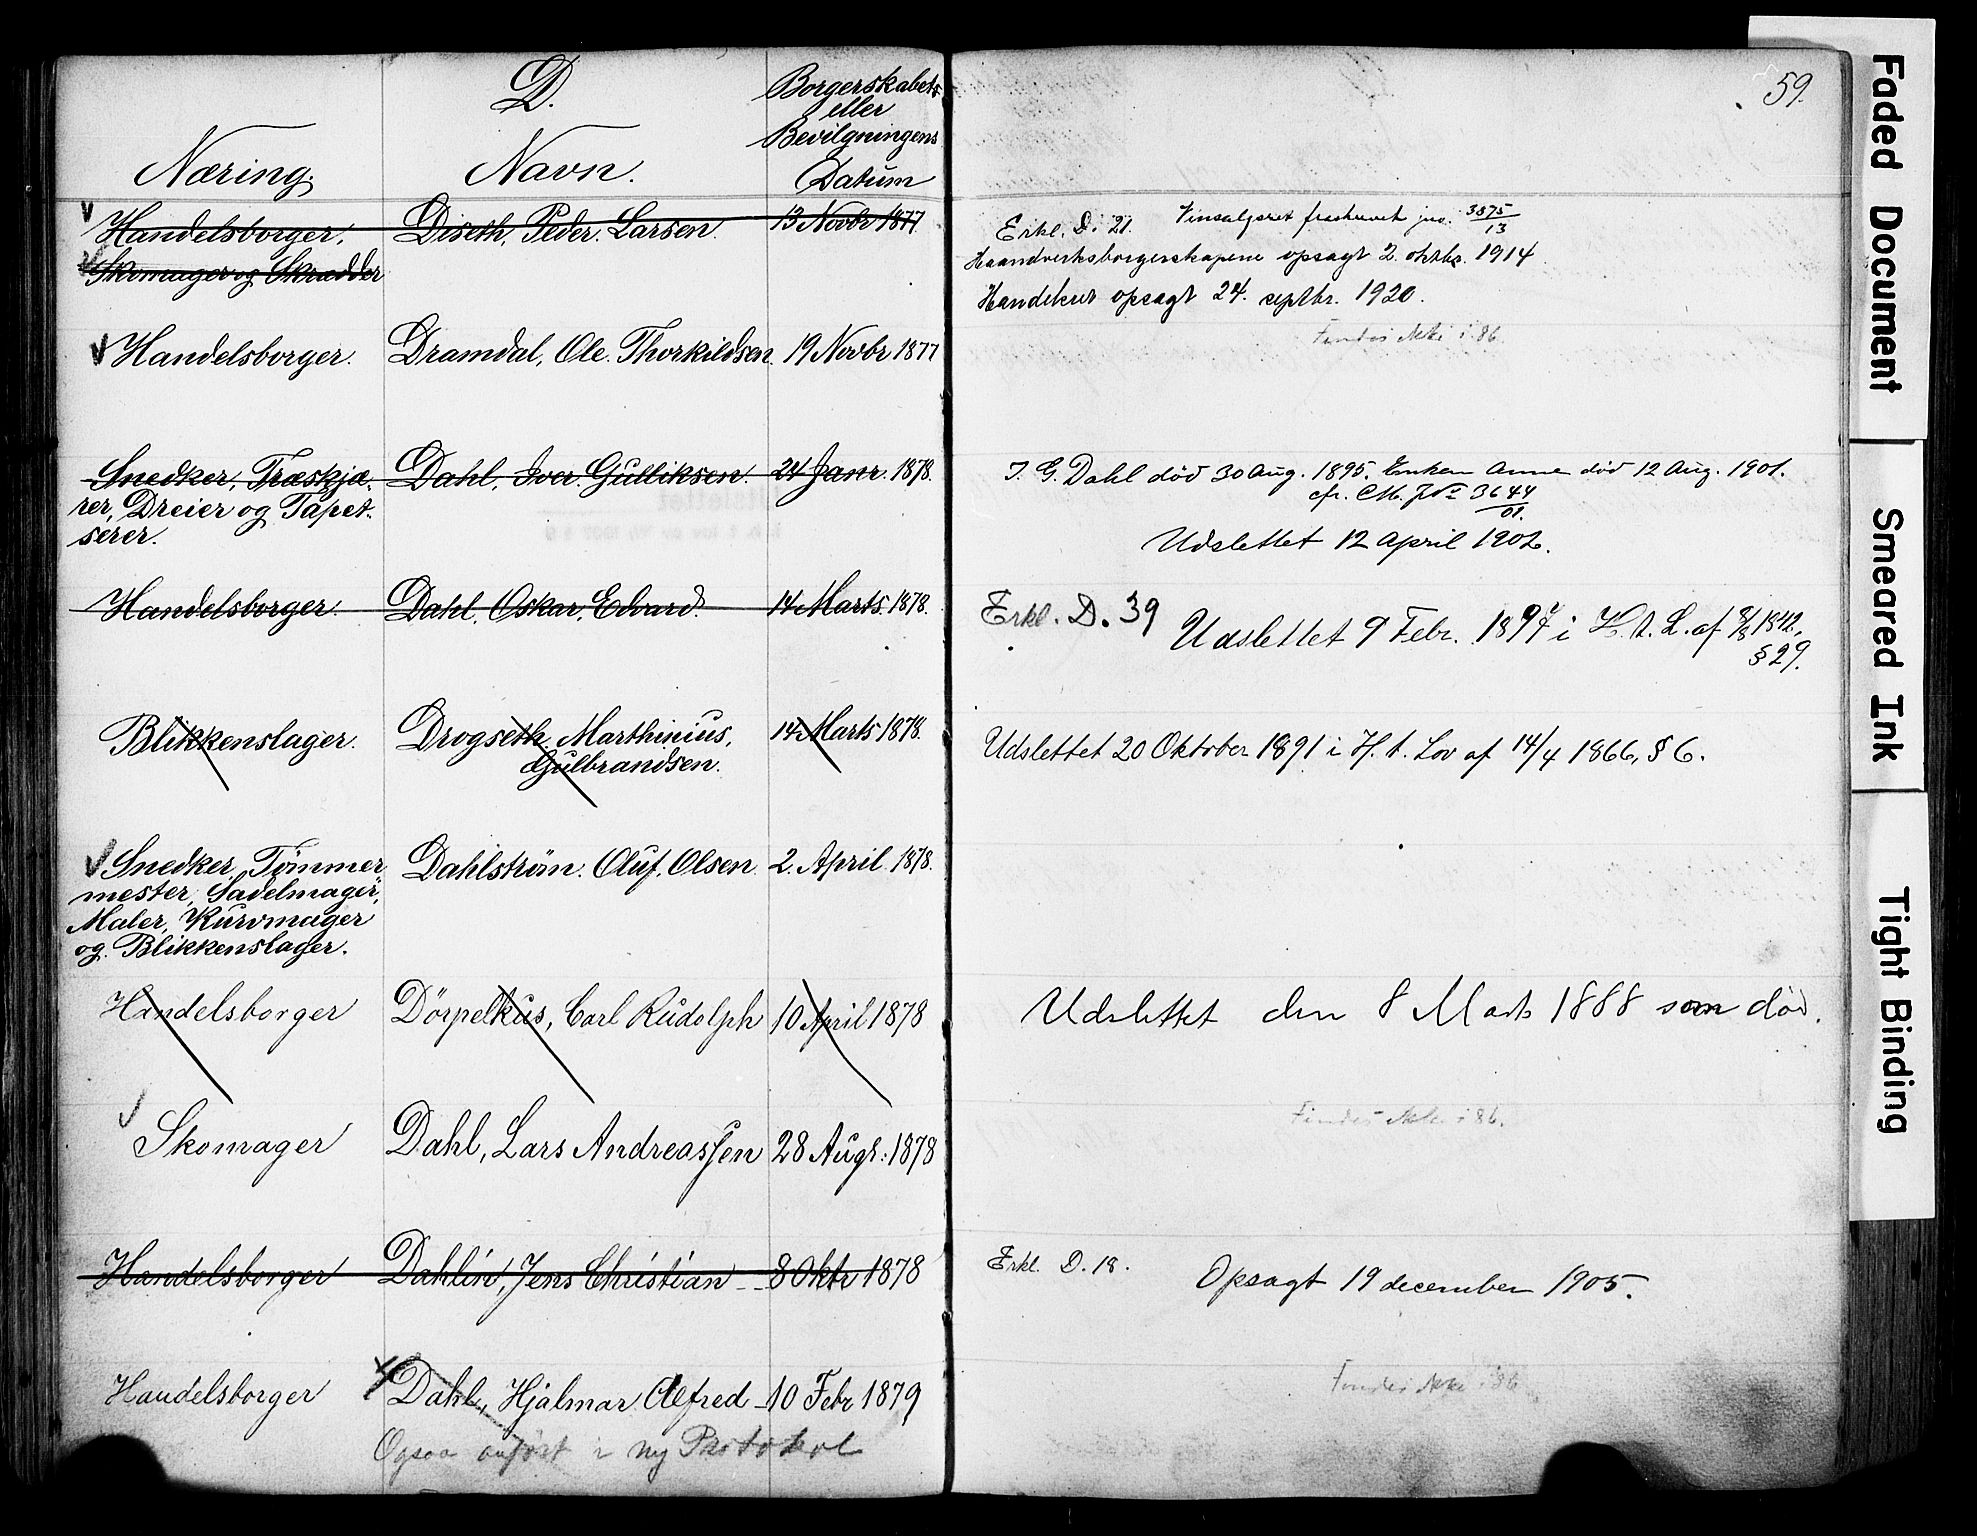 D.
Borgerskabets
eller
Bevilgningens
Datum
Næring.
Navn.
59.
Handelsborger.
Diseth, Peder. Larsen.
13 Novbr 1877
Skomager og Skrædder
Erkl. D. 21.
Vinsalgsret fraskrevet jno. 3875/13
Haandverksborgerskapene opsagt 2. oktbr. 1914.
Handelsret opsagt 24. septbr. 1920.
Handelsborger.
Dramdal, Ole. Thorkildsen.
19 Novbr 1877
Findes ikke i 86.
Snedker, Træskjæ-
rer, Dreier og Tapet-
serer.
Dahl, Iver. Gulliksen.
24 Janr. 1878.
I. G. Dahl död 30 Aug. 1895. Enken Anne död 12 Aug. 1901.
cfr. CM. JNo 3644/01.
Udslettet 12 april 1902.
Handelsborger.
Dahl, Oskar, Edvard.
14 Marts 1878.
Erkl. D. 39
Udslettet 9 Febr. 1897 i H. t. L. af 8/8 1842,
§ 29.
Blikkenslager.
Drogseth. Marthinius,
Gulbrandsen.
14 Marts 1878.
Udslettet 20 Oktober 1891 i H. t. Lov af 14/4 1866, § 6.
Snedker, Tömmer
mester, Sadelmager,
Maler, Kurvmager
og Blikkenslager.
Dahlström. Oluf. Olsen.
2. April. 1878.
Handelsborger
Dörpelkus, Carl Rudolph
10 April 1878
Udslettet den 8 Marts 1888 som död.
Skomager
Dahl, Lars Andreassen
28 Augt: 1878
Findes ikke i 86.
Handelsborger
Dahlin, Jens Christian --
8 Oktr 1878
Erkl. D. 18.
Opsagt 19 december 1905.
Handelsborger
Dahl, Hjalmar Alfred -
10 Febr 1879
Findes ikke i 86
Ogsaa anfört i ny Protokol
Faded Document
Smeared Ink
Tight Binding